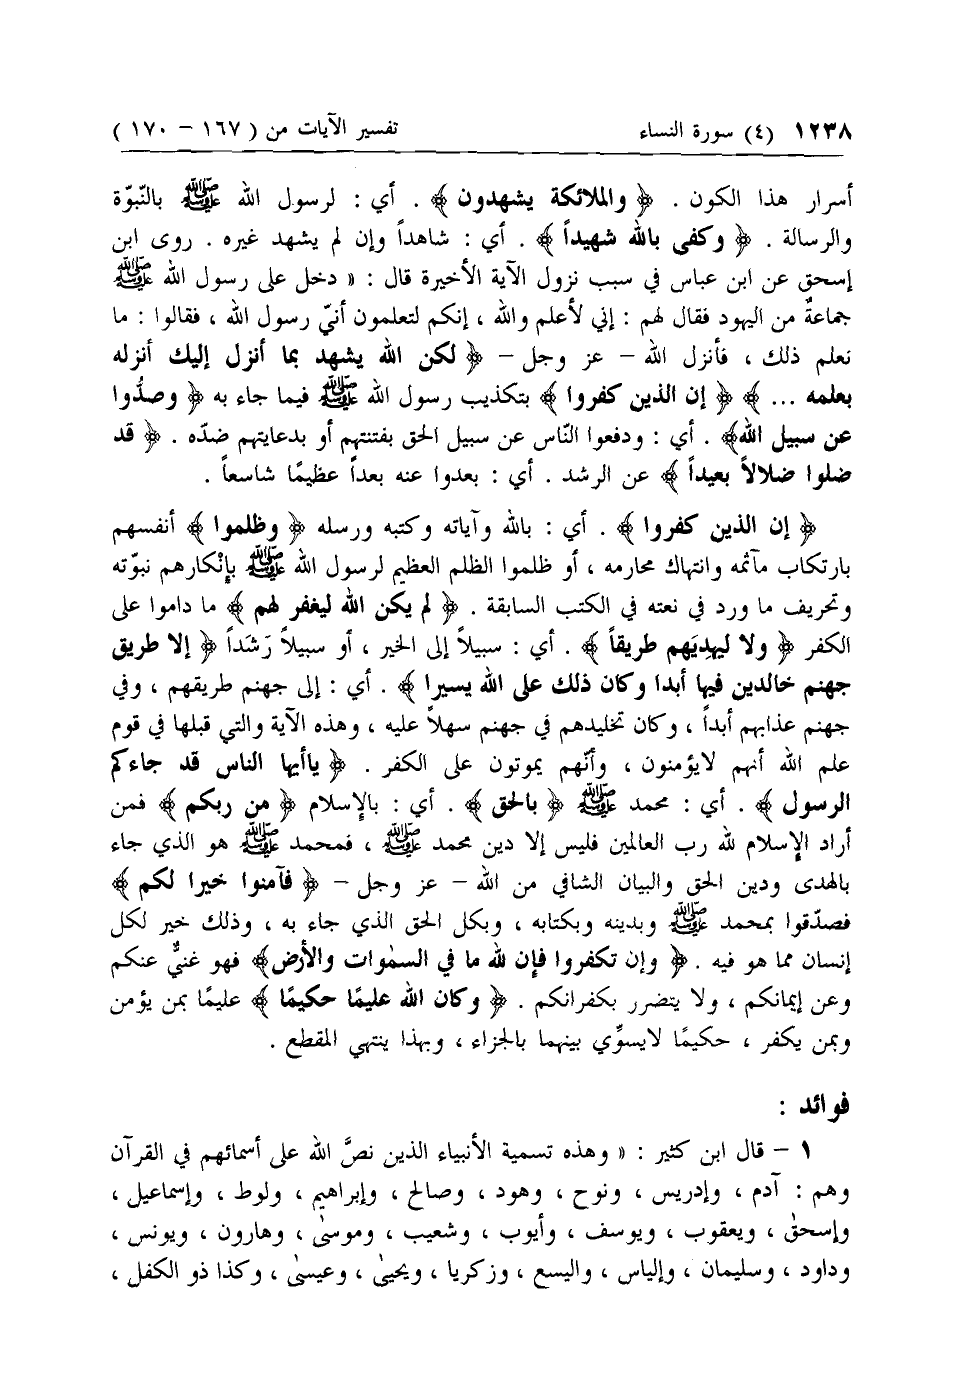 ١٢٣٨ (٤) سورة النساء تفسير الآيات من ( ١٦٧ – ١٧٠ )
أسرار هذا الكون . ﴿ والملائكة يشهدون ﴾ . أي : لرسول الله ﷺ بالنّبوّة
والرسالة . ﴿ وكفى بالله شهيداً ﴾ . أي : شاهداً وإن لم يشهد غيره . روى ابن
إسحق عن ابن عباس في سبب نزول الآية الأخيرة قال : « دخل على رسول الله ﷺ
جماعةٌ من اليهود فقال لهم : إني لأعلم والله ، إنكم لتعلمون أنيّ رسول الله ، فقالوا : ما
نعلم ذلك ، فأنزل الله – عز وجل – ﴿ لكن الله يشهد بما أنزل إليك أنزله
بعلمه ... ﴾ ﴿ إن الذين كفروا ﴾ بتكذيب رسول الله ﷺ فيما جاء به ﴿ وصدُّوا
عن سبيل الله﴾ . أي : ودفعوا النّاس عن سبيل الحق بفتنتهم أو بدعايتهم ضدّه . ﴿ قد
ضلوا ضلالاً بعيداً ﴾ عن الرشد . أي : بعدوا عنه بعداً عظيمًا شاسعاً .
﴿ إن الذين كفروا ﴾ . أي : بالله وآياته وكتبه ورسله ﴿ وظلموا ﴾ أنفسهم
بارتكاب مآثمه وانتهاك محارمه ، أو ظلموا الظلم العظيم لرسول الله ﷺ بإنْكارهم نبوّته
وتحريف ما ورد في نعته في الكتب السابقة . ﴿ لم يكن الله ليغفر لهم ﴾ ما داموا على
الكفر ﴿ ولا ليهدِيَهم طريقاً ﴾ . أي : سبيلاً إلى الخير ، أو سبيلاً رَشَداً ﴿ إلا طريق
جهنم خالدين فيها أبدا وكان ذلك على الله يسيرا ﴾ . أي : إلى جهنم طريقهم ، وفي
جهنم عذابهم أبداً ، وكان تخليدهم في جهنم سهلاً عليه ، وهذه الآية والتي قبلها في قوم
علم الله أنهم لايؤمنون ، وأنّهم يموتون على الكفر . ﴿ ياأيها الناس قد جاءكم
الرسول ﴾ . أي : محمد ﷺ ﴿ بالحق ﴾ . أي : بالإسلام ﴿ من ربكم ﴾ فمن
أراد الإسلام لله رب العالمين فليس إلا دين محمد ﷺ ، فمحمد ﷺ هو الذي جاء
بالهدى ودين الحق والبيان الشافي من الله – عز وجل – ﴿ فآمنوا خيرا لكم ﴾
فصدّقوا بمحمد ﷺ وبدينه وبكتابه ، وبكل الحق الذي جاء به ، وذلك خير لكل
إنسان مما هو فيه . ﴿ وإن تكفروا فإن لله ما في السمٰوات والأرض﴾ فهو غنيٌّ عنكم
وعن إيمانكم ، ولا يتضرر بكفرانكم . ﴿ وكان الله عليمًا حكيمًا ﴾ عليمًا بمن يؤمن
وبمن يكفر ، حكيمًا لايسوِّي بينهما بالجزاء ، وبهذا ينتهي المقطع .
فوائد :
١ – قال ابن كثير : « وهذه تسمية الأنبياء الذين نصَّ الله على أسمائهم في القرآن
وهم : آدم ، وإدريس ، ونوح ، وهود ، وصالح ، وإبراهيم ، ولوط ، وإسماعيل ،
وإسحقٰ ، ويعقوب ، ويوسف ، وأيوب ، وشعيب ، وموسىٰ ، وهارون ، ويونس ،
وداود ، وسليمان ، وإلياس ، واليسع ، وزكريا ، ويحيىٰ ، وعيسىٰ ، وكذا ذو الكفل ،